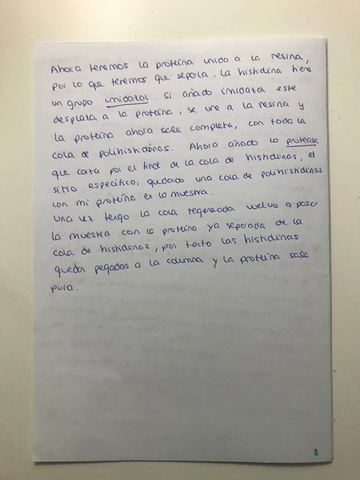 Ahora tenemos la proteína unida a la resina,
por lo que tenemos que separla. La histidina tiene
un grupo imidazol. Si añado imidazol este
desplaza a la proteína, se une a la resina y
la proteína ahora sale completa, con toda la
cola de polihistidinas. Ahora añado la proteasa
que corta por el final de la cola de histidinas, el
sitio específico, quedando una cola de polihistidinas
con mi proteína en la muestra.
Una vez tengo la cola regenerada vuelvo a pasar
la muestra con la proteína ya separada de la
cola de histidinas, por tanto las histidinas
quedan pegadas a la columna y la proteína sale
pura.
2